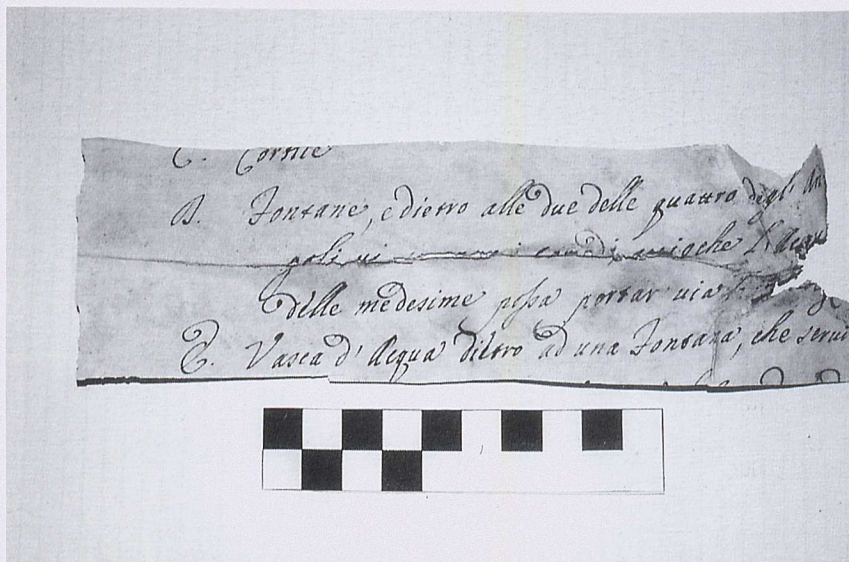 C. Cortile
D. Fontane, e dietro alle due delle quattro degl' An
goli vi comodi, accioche l' Acqu
delle medesime possa portar via
E. Vasca d' Acqua dietro ad una Fontana, che servi